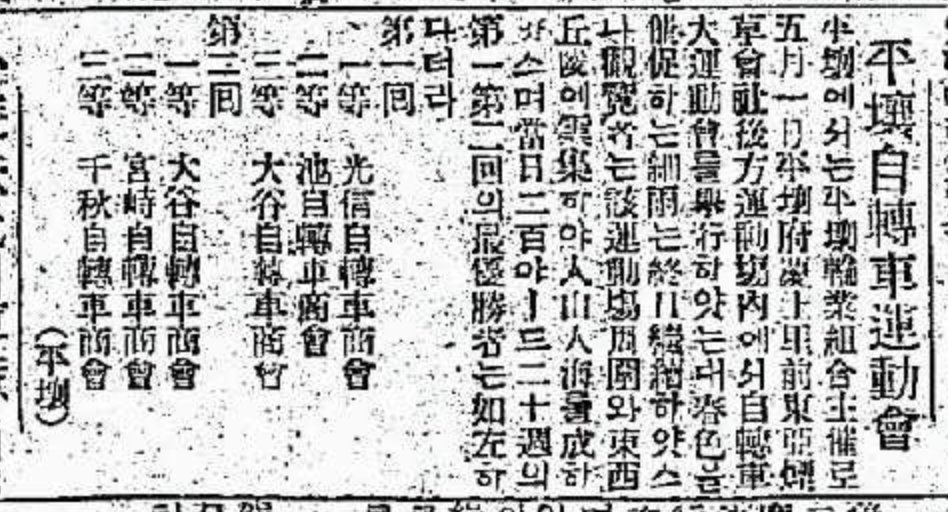 平壤自轉車運動會
平壤에서는平壤輪業組合主催로
五月一日平壤府陵上里前東亞煙
草會社後方運動場內에서自轉車
大運動會를擧行하얏는대春色을
催促하는細雨는終日繼續하얏스
나觀覽者는該運動場周圍와東西
丘陵에雲集하야人山人海를成하
얏스며當日二百야ー드二十週의
第一第二回의最優勝者는如左하
다더라
第一回
一等 光信自轉車商會
二等 池自轉車商會
三等 大谷自轉車商會
第二回
一等 大谷自轉車商會
二等 宮崎自轉車商會
三等 千秋自轉車商會
(平壤)